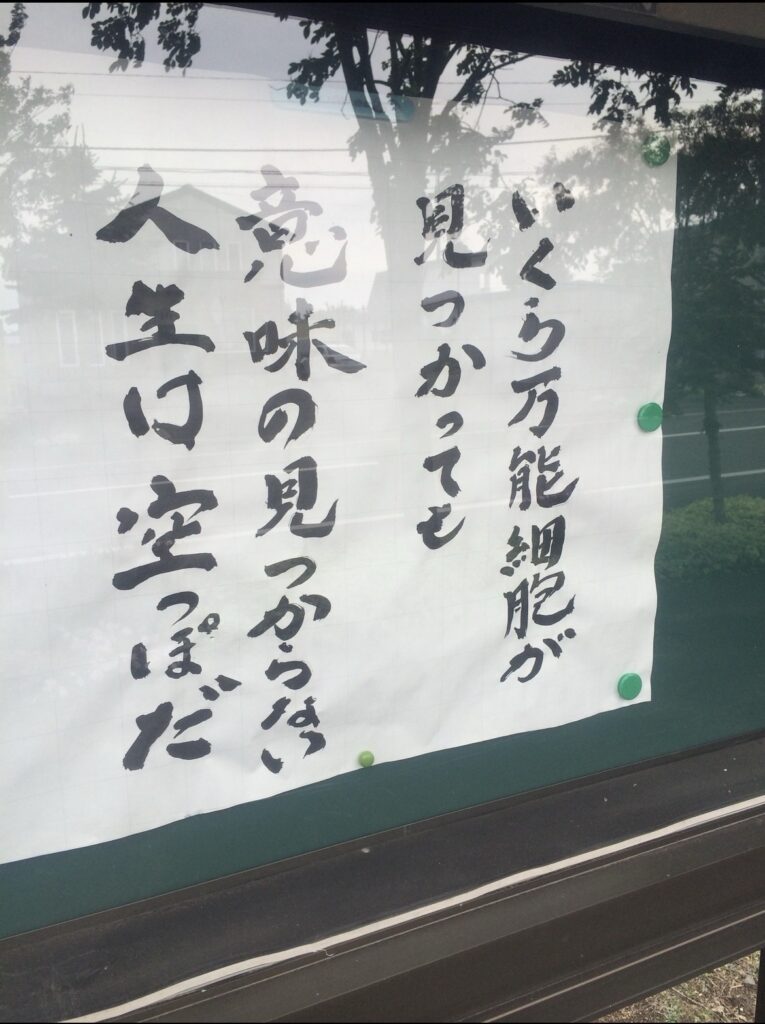 いくら万能細胞が
見つかっても
意味の見つからない
人生は空っぽだ